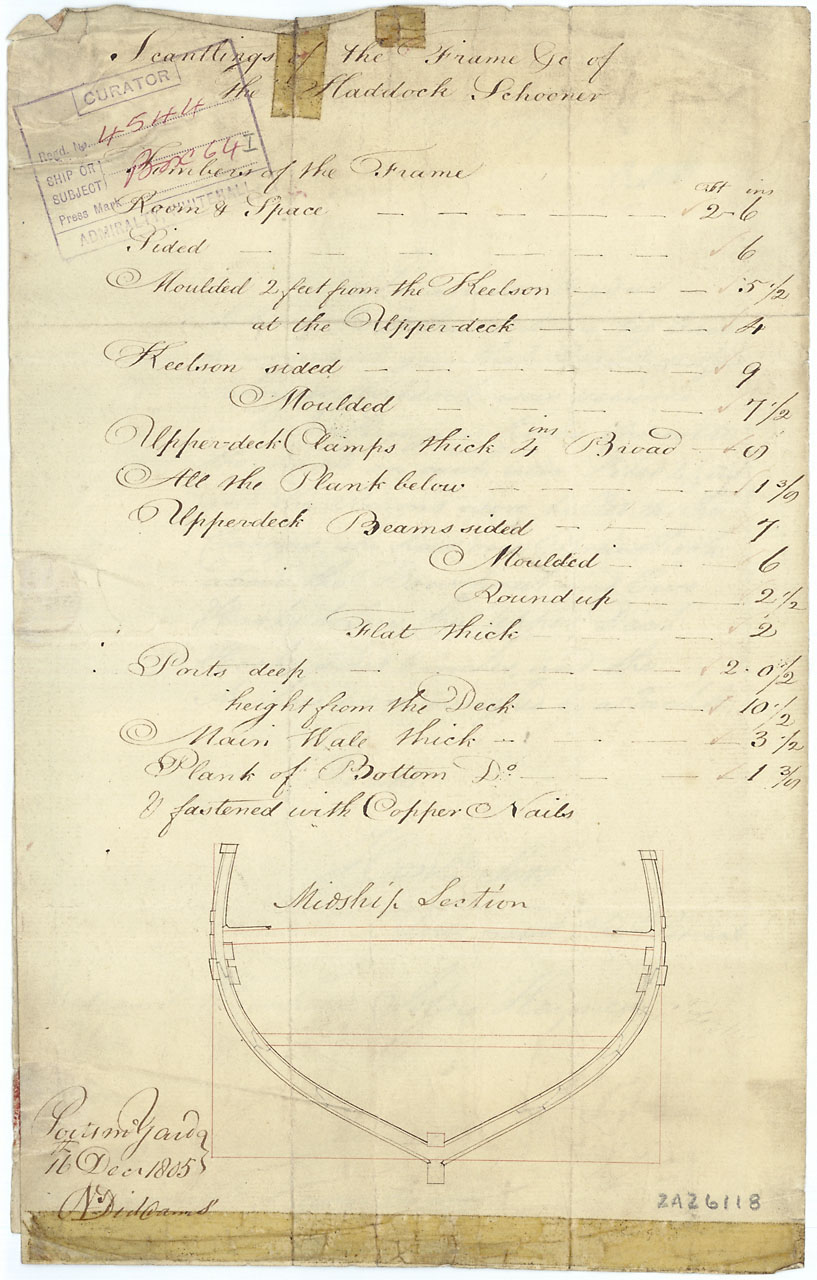 Scantlings of the Frame &c of
the Haddock Schooner
CURATOR
Regd. No. 4544
SHIP OR
SUBJECT
Press Mark Box 64 I
ADMIRALTY, WHITEHALL
Timbers of the Frame
ft ins
Room & Space — — — — — 2-6
Sided — — — — — 6
Moulded 2 feet from the Keelson — — — 5 1/2
at the Upper-deck — — — 4
Keelson sided — — — — — 9
Moulded — — — — 7 1/2
Upper-deck Clamps thick 4 ins Broad — 8
All the Plank below — — — — 1 3/8
Upper-deck Beams sided — — — 7
Moulded — — 6
Round up — — 2 1/2
Flat thick — 2
Ports deep — — — — — 2.0 1/2
height from the Deck — — — 10 1/2
Main Wale thick — — — — 3 1/2
Plank of Bottom Do — — — — 1 3/8
& fastened with Copper Nails
Midship Section
Portsmo Yard
16 Decr 1805
N Diddams
ZAZ6118